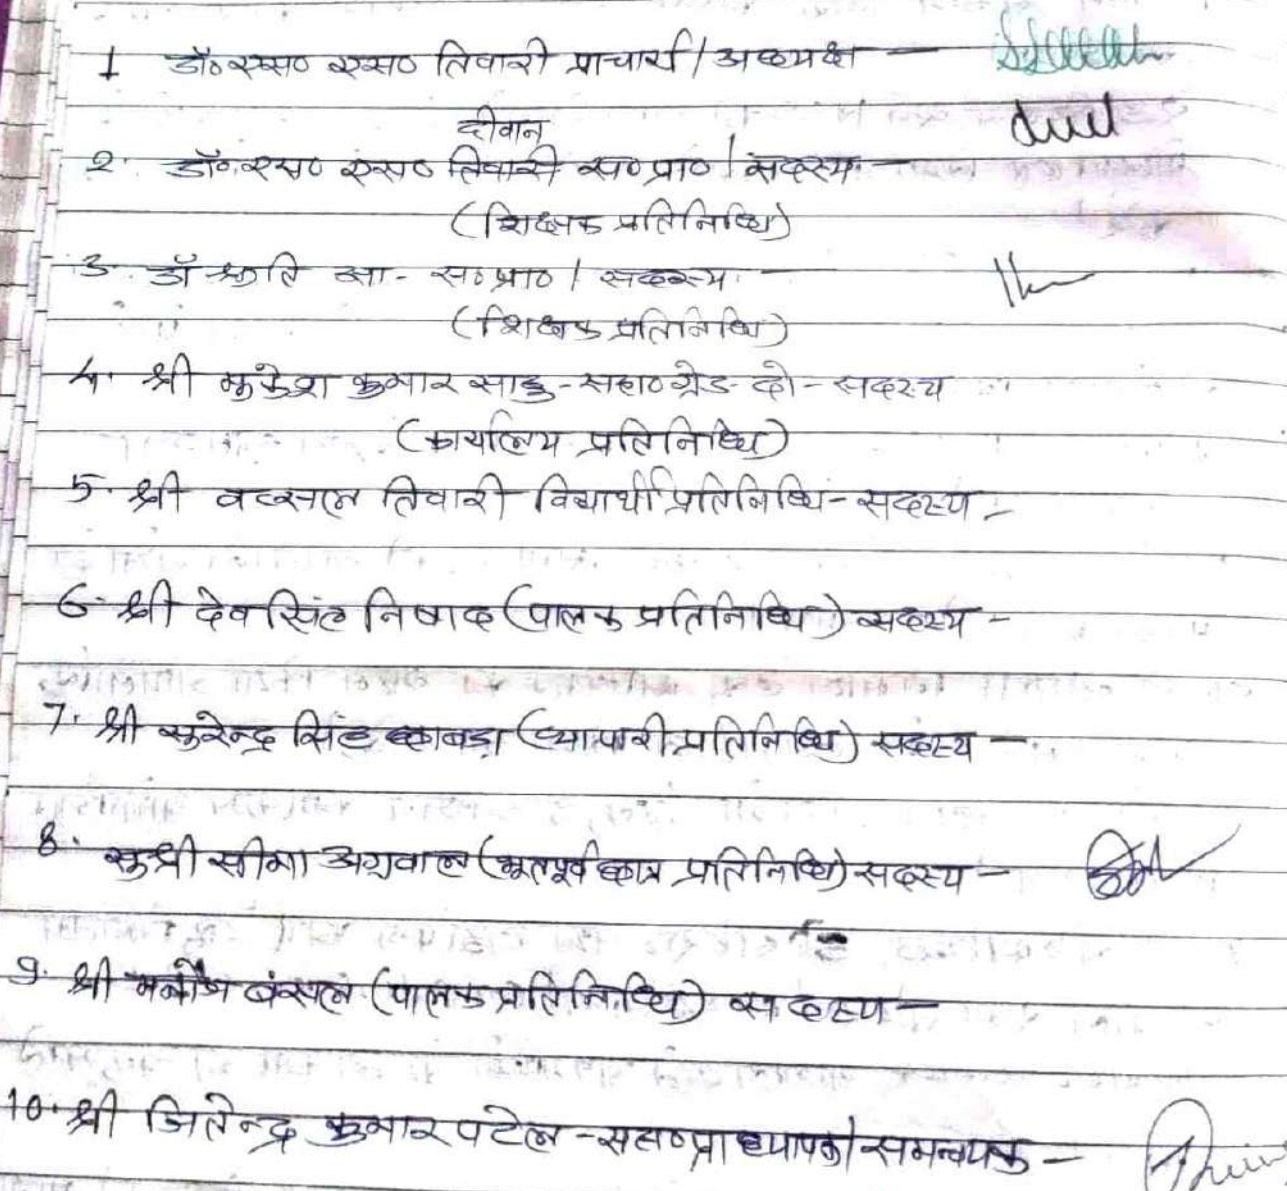 1 डॉ० एस० एस० तिवारी प्राचार्य / अध्यक्ष —
दीवान
2. डॉ० एस० एस० तिवारी स० प्रा० / सदस्य —
(शिक्षक प्रतिनिधि)
3. डॉ श्रुति झा - स० प्रा० / सदस्य —
(शिक्षक प्रतिनिधि)
4. श्री मुकेश कुमार साहु - सहा० ग्रेड - दो - सदस्य
(कार्यालय प्रतिनिधि)
5. श्री वत्सल तिवारी विद्यार्थी प्रतिनिधि - सदस्य -
6. श्री देव सिंह निषाद (पालक प्रतिनिधि) सदस्य -
7. श्री सुरेन्द्र सिंह छाबड़ा (व्यापारी प्रतिनिधि) सदस्य —
8. सुश्री सीमा अग्रवाल (भूतपूर्व छात्र प्रतिनिधि) सदस्य —
9. श्री मनोज बंसल (पालक प्रतिनिधि) सदस्य —
10. श्री जितेन्द्र कुमार पटेल - सहा० प्राध्यापक / समन्वयक —